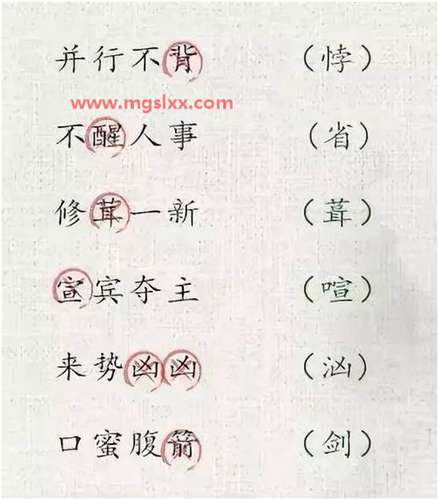 并行不背 （悖）
www.mgslxx.com
不醒人事 （省）
修茸一新 （葺）
宣宾夺主 （喧）
来势凶凶 （汹）
口蜜腹箭 （剑）